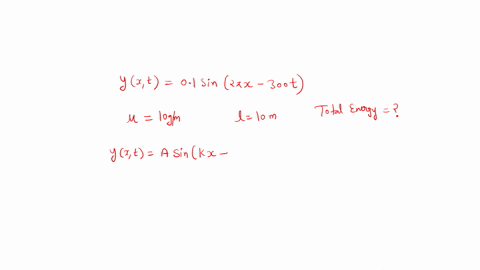 y(x,t) = 0.1 sin (2πx - 300t)
μ = 10g/m l = 10m Total Energy = ?
y(x,t) = A sin(kx -